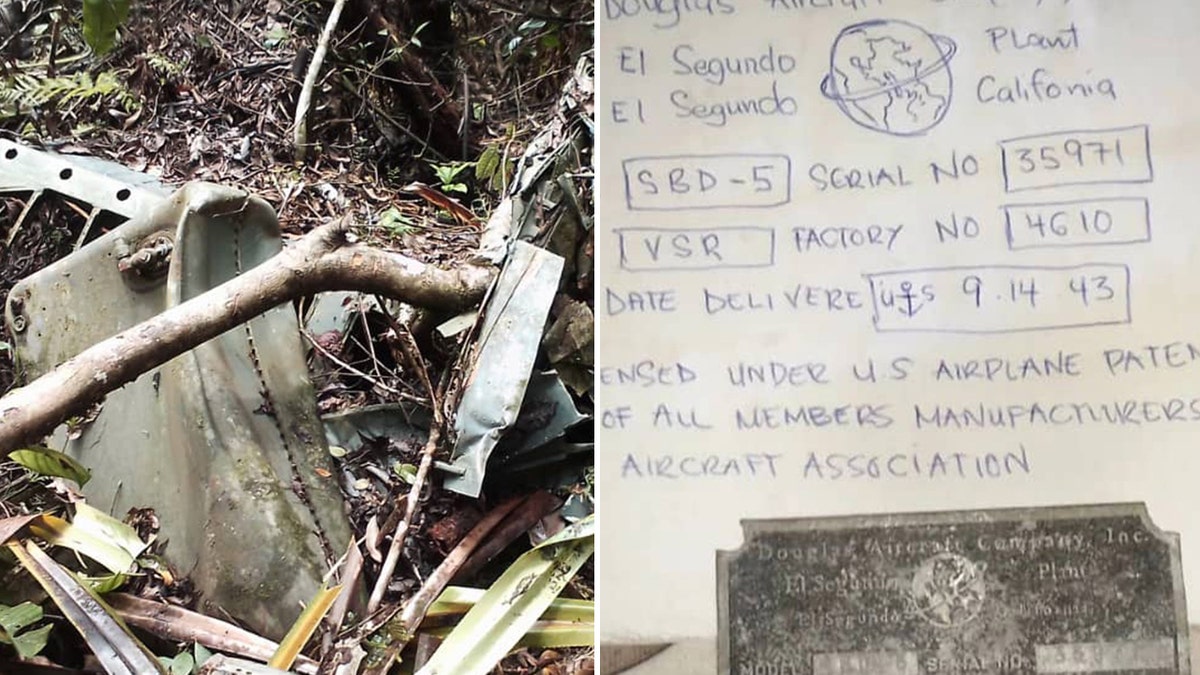 Douglas Aircraft
El Segundo Plant
El Segundo Califonia
SBD-5 SERIAL NO 35971
VSR FACTORY NO 4610
DATE DELIVERE 9.14 43
ENSED UNDER U.S AIRPLANE PATEN
OF ALL MEMBERS MANUFACTURERS
AIRCRAFT ASSOCIATION
Douglas Aircraft Company, Inc.
El Segundo Plant
El Segundo
MODEL SERIAL NO.